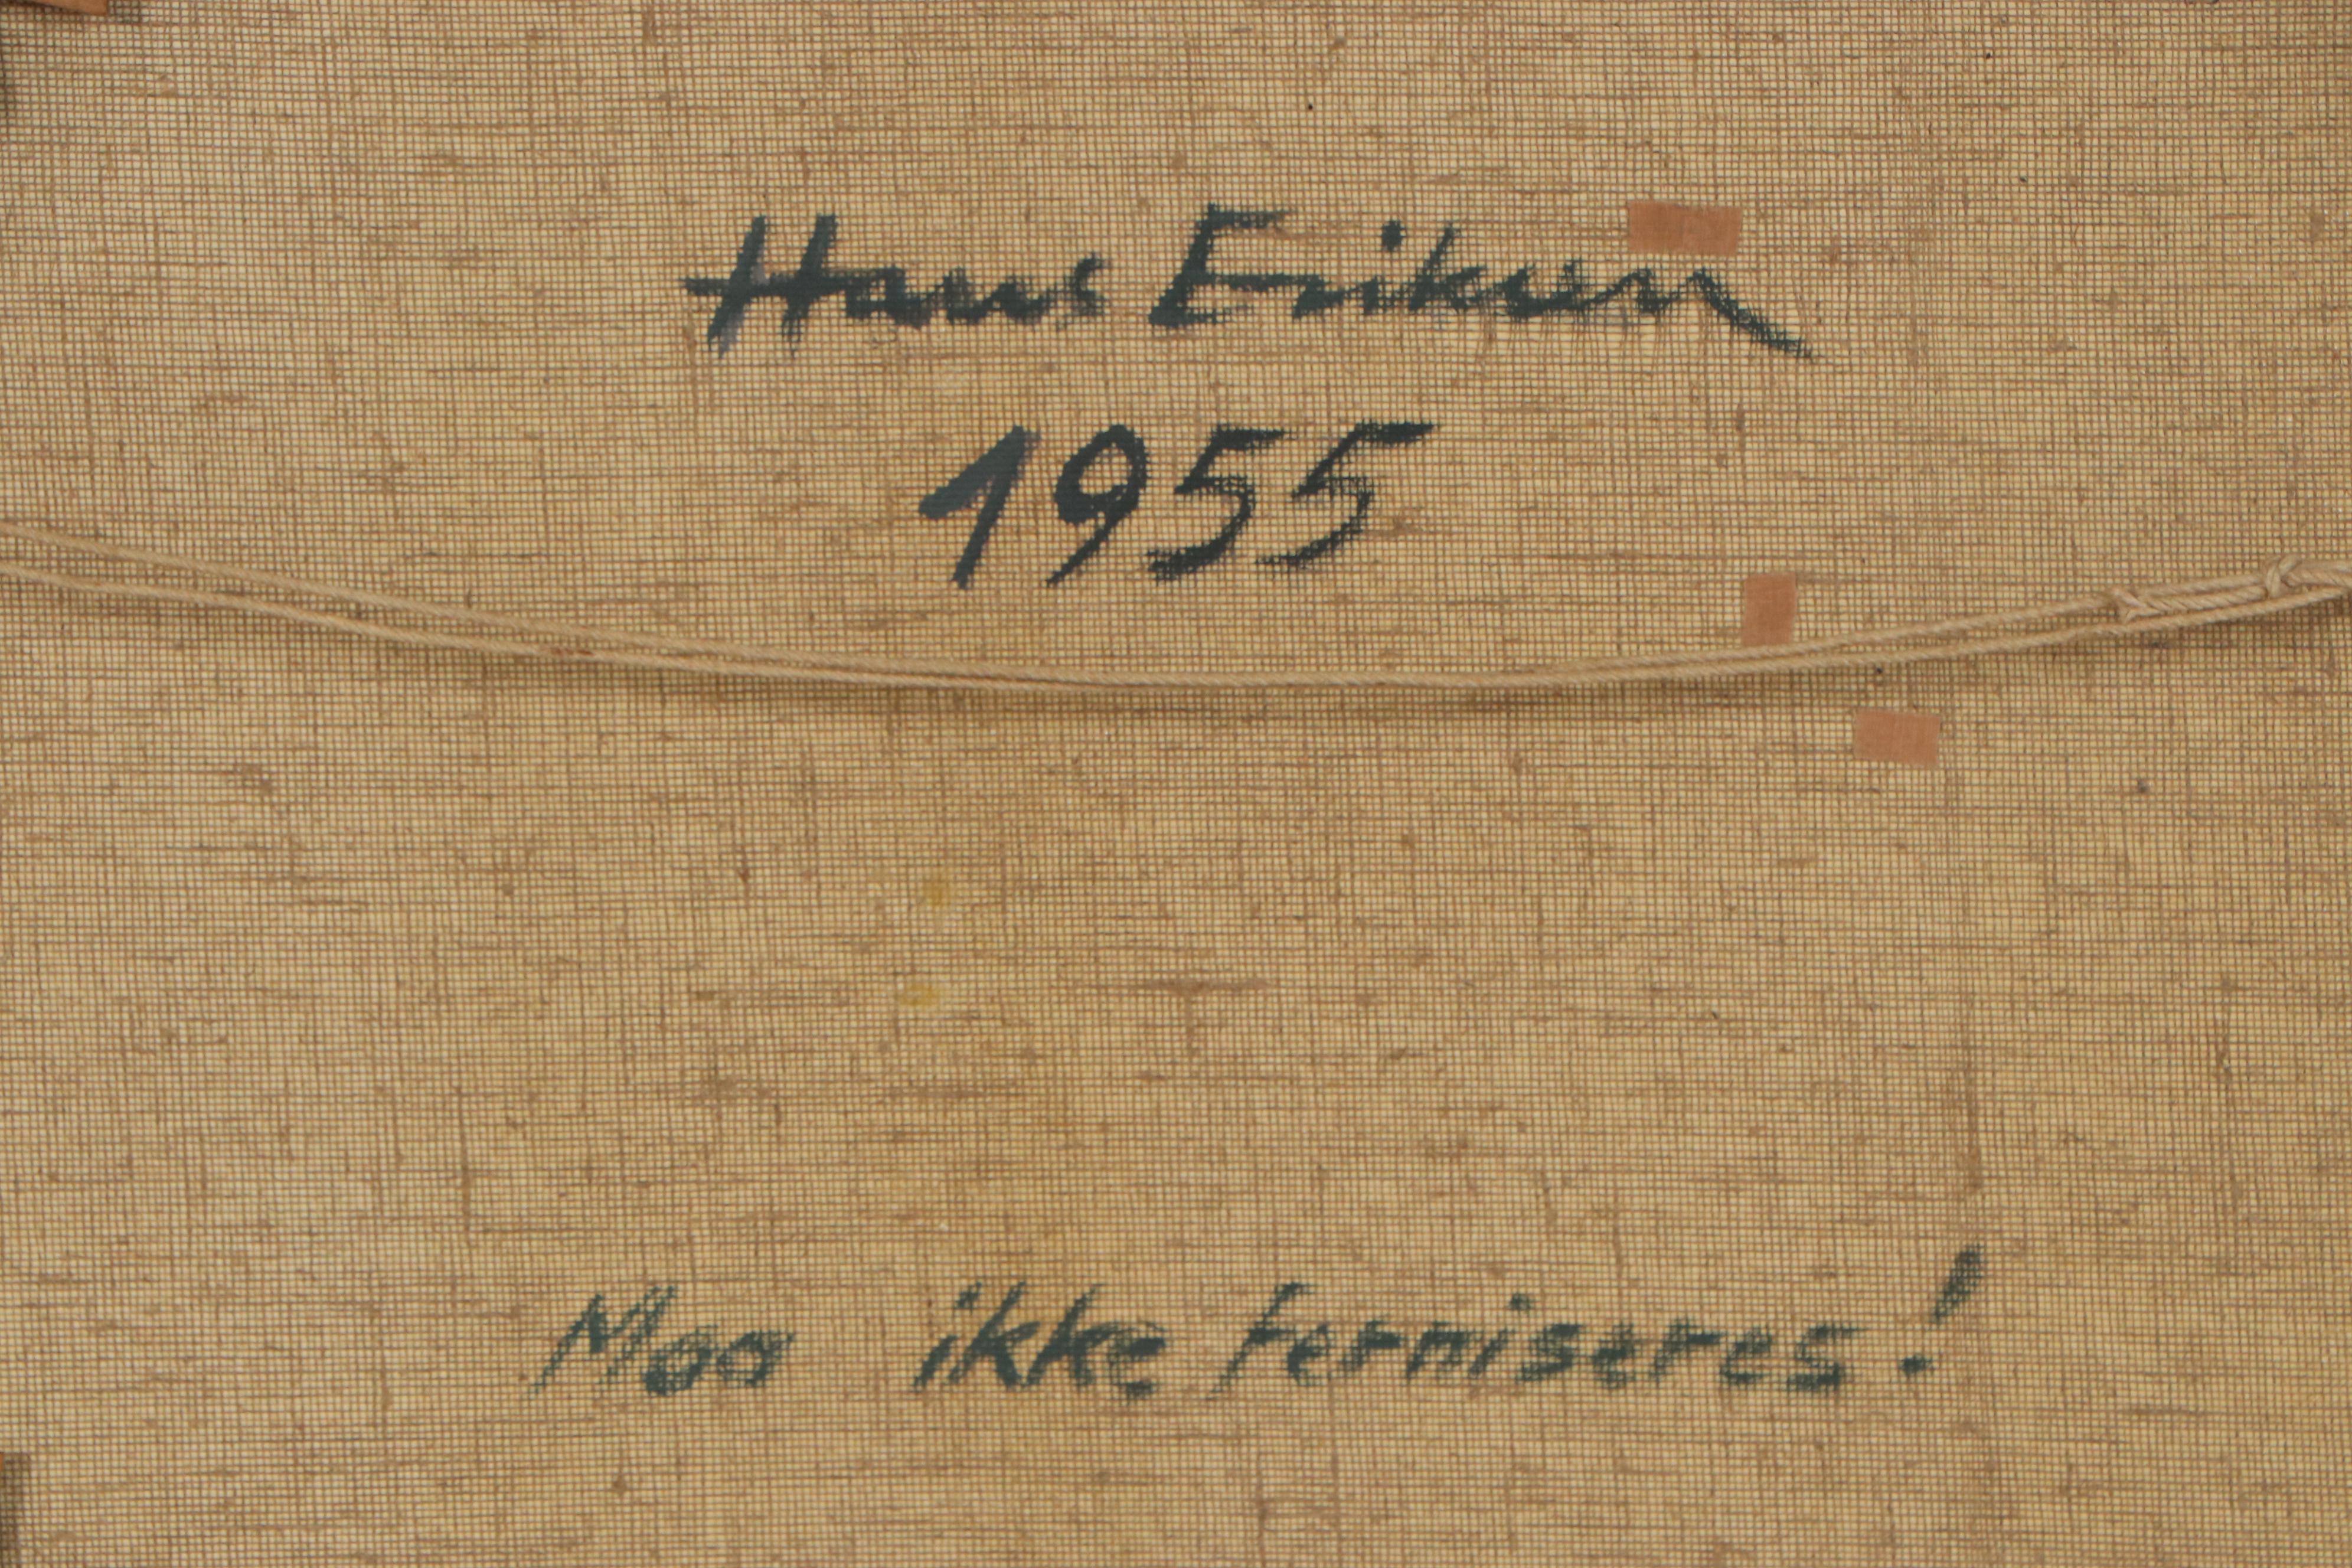 Hans Eriksen
1955
Maa ikke ferniseres!